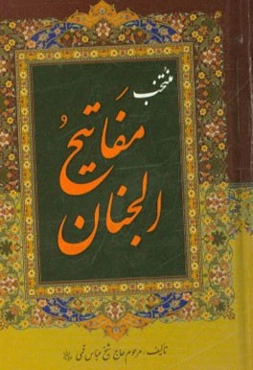 منتخب
مفاتیحُ
الجنان
تألیف: مرحوم حاج شیخ عباس قمی